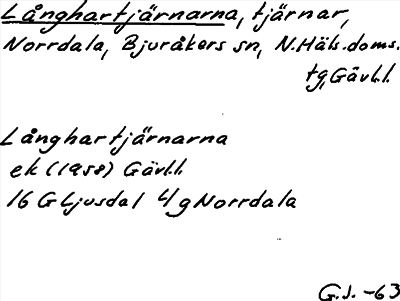 Långhartjärnarna, tjärnar,
Norrdala, Bjuråkers sn, N.Häls.doms.
tg, Gävl.l.
Långhartjärnarna
ek (1958) Gävl.l.
16 G Ljusdal 4g Norrdala
G.J. -63